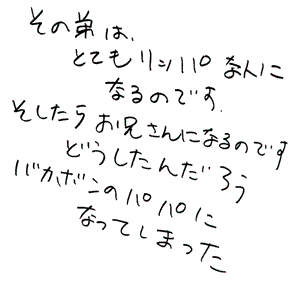 その弟は、
とてもリッパな人に
なるのです.
そしたらお兄さんになるのです
どうしたんだろう
バカボンのパパに
なってしまった